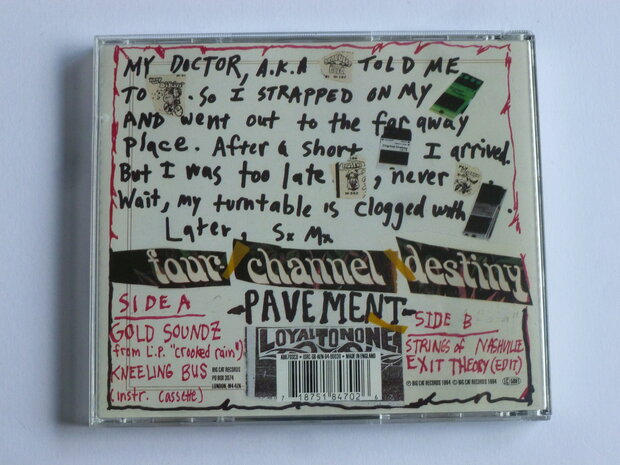 MY DOCTOR, A.K.A TOLD ME
TO . So I STRAPPED ON MY
AND went out to the far away
place. After a short I arrived.
But I was too late , never
Wait, my turntable is clogged with .
Later, Sx Mx
four channel destiny
SIDE A
PAVEMENT
SIDE B
GOLD SOUNDZ
from L.P. "crooked rain")
KNEELING BUS
(instr. cassette)
BIG CAT RECORDS
PO BOX 3074
LONDON,
LOYALTONONE
MADE IN ENGLAND
7 18751 84702
STRINGS of NASHVILLE
EXIT THEORY (EDIT)
℗ BIG CAT RECORDS 1994 © BIG CAT RECORDS 1994